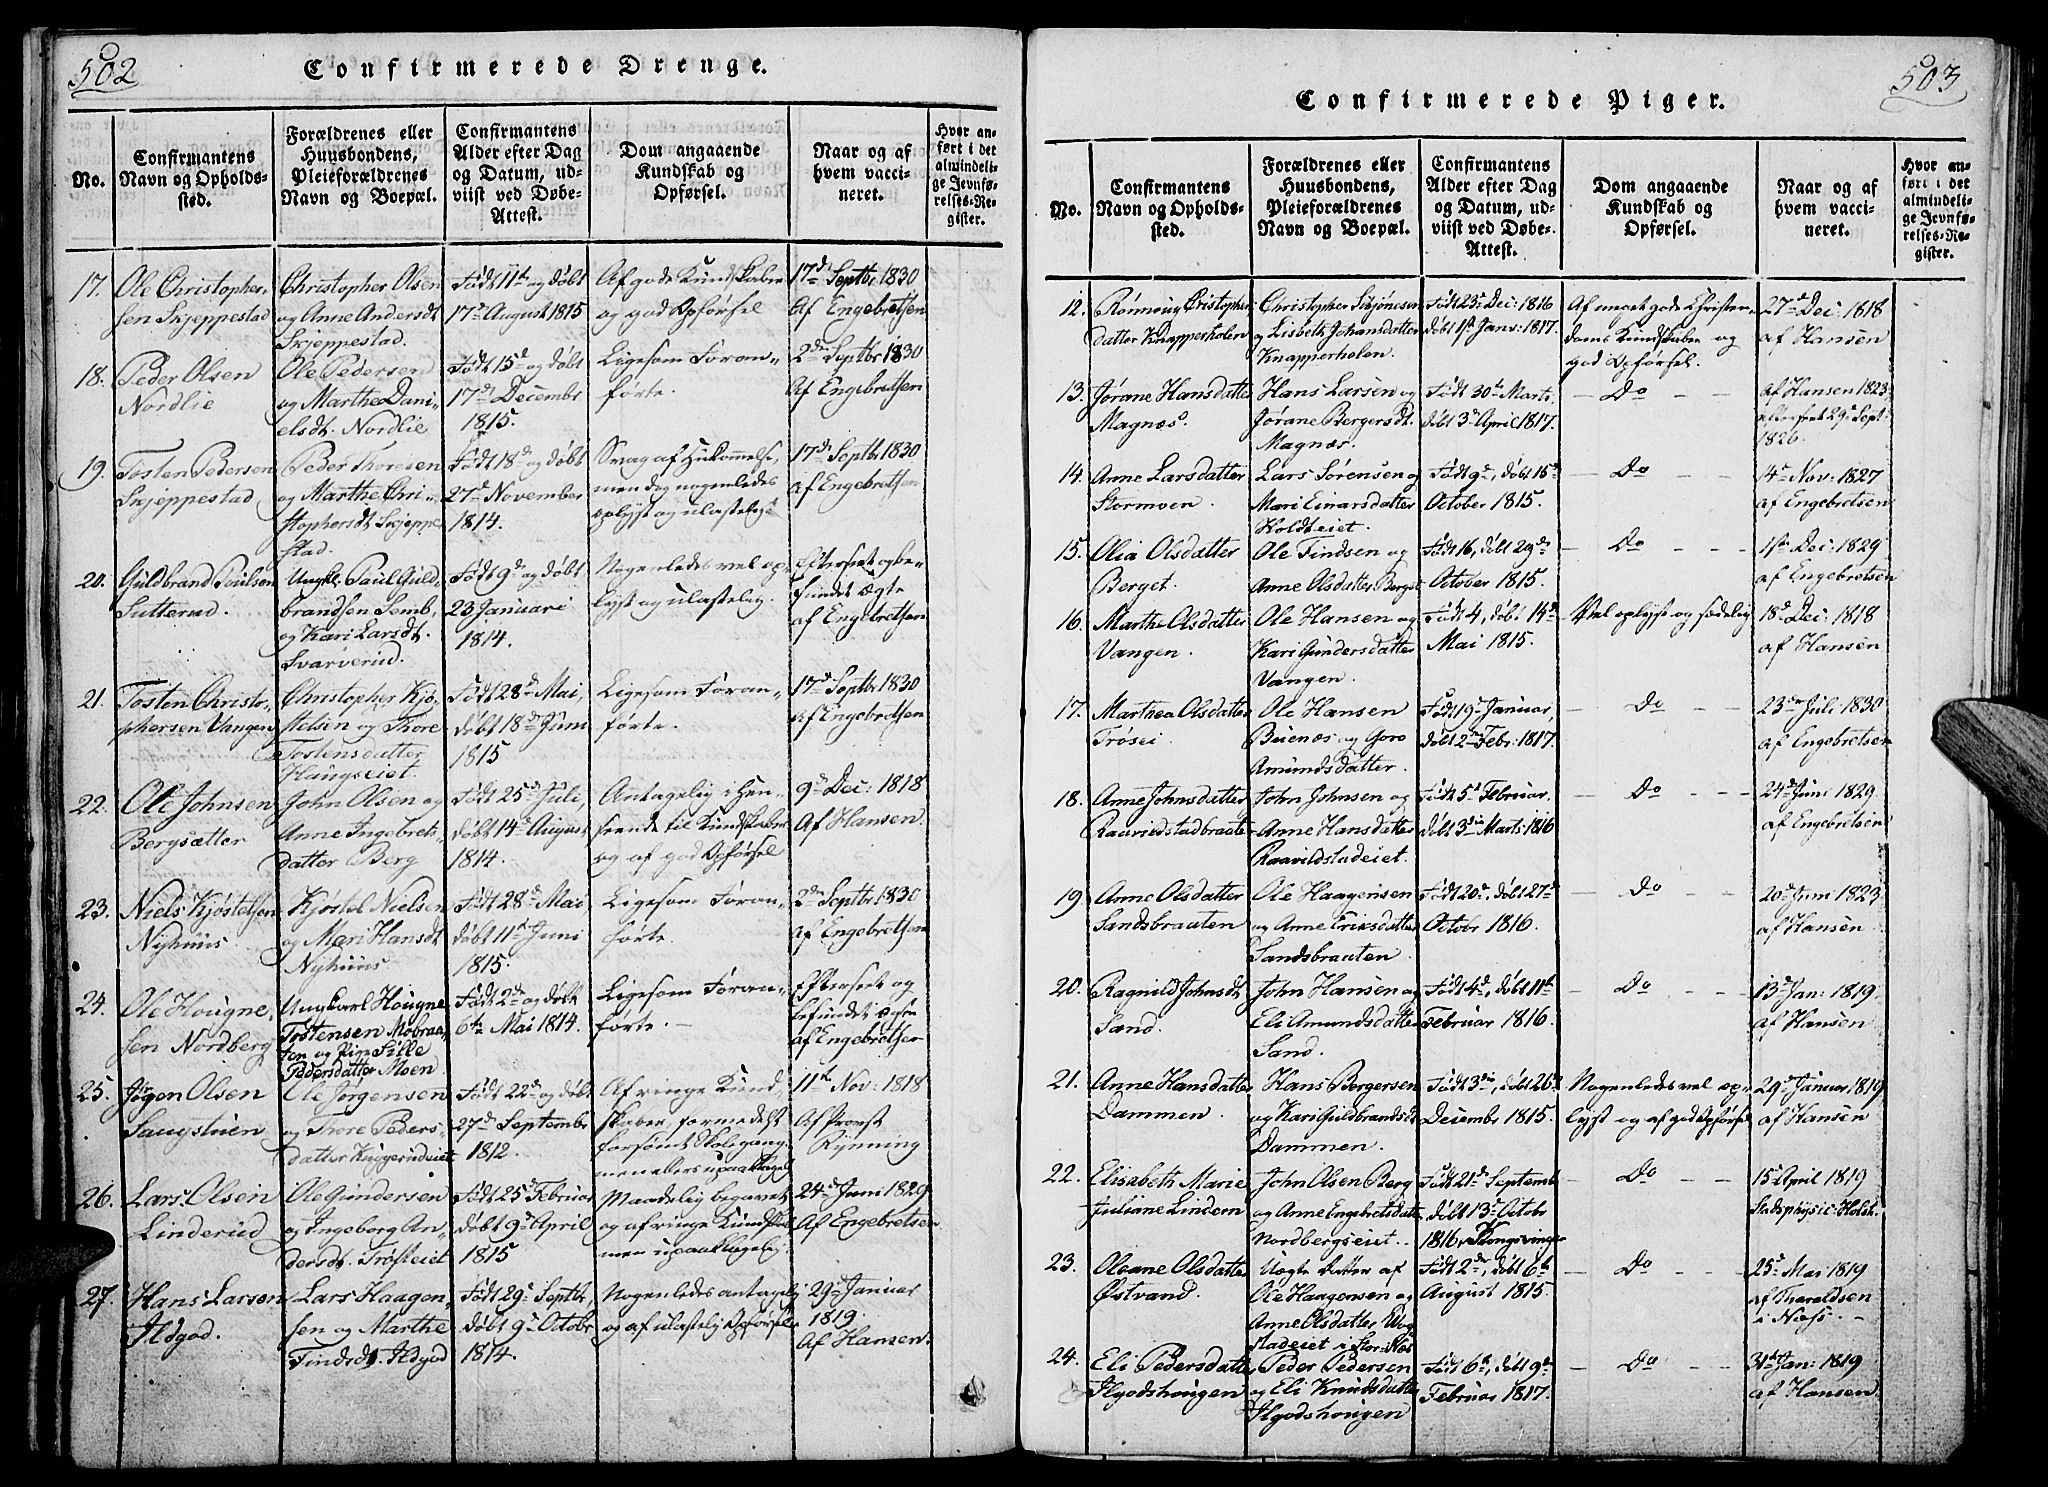 502
Confirmerede Drenge.
No.
Confirmantens
Navn og Opholds-
sted.
Forældrenes eller
Huusbondens,
Pleieforældrenes
Navn og Boepæl.
Confirmantens
Alder efter Dag
og Datum, ud-
viist ved Døbe-
Attest.
Dom angaaende
Kundskab og
Opførsel.
Naar og af
hvem vacci-
neret.
Hvor an-
ført i det
almindeli-
ge Jevnfø-
relses-Re-
gister.
17.
Ole Christopher-
sen Skjeppestad
Christopher Olsen
og Anne Andersdt
Skjeppestad.
Født 11te og døbt
17de August 1815
Af gode Kundskaber
og god Opførsel
17de Septbr 1830
Af Engebretsen
18.
Peder Olsen
Nordlie
Ole Pedersen
og Marthe Dani-
elsdt. Nordlie
Født 15de og døbt
17de Decembr
1815.
Ligesom Foran-
førte.
2den Septbr 1830
Af Engebretsen
19.
Tosten Pedersen
Skjeppestad
Peder Thoresen
og Marthe Chri-
stophersdt Skjeppe-
stad.
Født 18de og døbt
27de November
1814.
Svag af Hukommelse,
men dog nogenledes
oplyst og ulastelig
17de Septbr 1830
af Engebretsen
20.
Guldbrand Paulsen
Sutterud.
Ungkl. Paul Guld-
brandsen Semb,
og Kari Larsdt.
Svarverud.
Født 9de og døbt
23 Januari
1814.
Nogenledes vel op-
lyst og ulastelig.
Efterseet og be-
fundet ægte
af Engebretsen
21.
Tosten Christo-
phersen Vangen
Christopher Kjø-
stelsen og Thore
Tostensdatter
Haugseiet.
Født 28de Mai,
døbt 18de Juni
1815
Ligesom Foran-
førte.
17de Septbr 1830
af Engebretsen
22.
Ole Johnsen
Bergsætter
John Olsen og
Anne Ingebrets-
datter Berg
Født 25de Juli,
døbt 14de August
1814.
Antagelig i Hen-
seende til Kundskaber
og af god Opførsel
9de Dec: 1818
Af Hansen.
23.
Niels Kjøstelsen
Nyhuus.
Kjøstel Nielsen
og Mari Hansdt
Nyhuus
Født 28de Mai,
døbt 11te Juni
1815.
Ligesom Foran-
førte.
2den Septbr 1830
af Engebretsen
24.
Ole Hougne-
sen Nordberg
Ungkarl Hougne
Tostensen Mobraa-
ten og Pige Sille
Pedersdatter Moen
Født 2den og døbt
6te Mai 1814.
Ligesom Foran-
førte.
Efterseet og
befundet ægte
af Engebretsen
25.
Jørgen Olsen
Saugstuen
Ole Jørgensen
og Thore Peders-
datter Kuggerudeiet
Født 22de og døbt
27de Septembr
1812.
Af ringe Kund-
skaber, formedelst
forsømt Skolegang,
men ellers upaaklagel.
11te Nov: 1818
Af Provst
Rynning
26.
Lars Olsen
Linderud
Ole Gundersen
og Ingeborg An-
dersdt. Trøsteiet
Født 25de Februar
døbt 9de April
1815
Maadelig begavet
og af ringe Kundskab
men upaaklagelig.
24de Juni 1829
Af Engebretsen
27.
Hans Larsen
Ilgod.
Lars Haagen-
sen og Marthe
Findsdt. Ilgod
Født 29de Septbr,
døbt 9de Octobr
1814.
Nogenledes antagelig
og af ulastelig Opførsel
29de Januar
1819
Af Hansen.
503
Confirmerede Piger.
No.
Confirmantens
Navn og Opholds-
sted.
Forældrenes eller
Huusbondens,
Pleieforældrenes
Navn og Boepæl.
Confirmantens
Alder efter Dag
og Datum, ud-
viist ved Døbe-
Attest.
Dom angaaende
Kundskab og
Opførsel.
Naar og af
hvem vacci-
neret.
Hvor an-
ført i det
almindeli-
ge Jevnfø-
relses-Re-
gister.
12.
Rønnoug Cristophers
datter Knapperholen
Christopher Skjønesen
og Lisbeth Johansdatter
Knapperholen.
Født 23de Dec: 1816
døbt 1ste Janv: 1817.
Af meget gode Christen-
doms Kundskaber og
god Opførsel.
27de Dec: 1818
af Hansen
13.
Jørane Hansdatter
Magnæs
Hans Larsen og
Jørane Bergersdt.
Magnæs.
Født 30te Marts,
døbt 3de April 1817.
Do
af Hansen 1823
efterseet 29de Sept.
1826
14.
Anne Larsdatter
Stormoen.
Lars Sørensen og
Mari Einarsdatter
Holdteiet.
Født 9de, døbt 15de
October 1815.
Do
14de Nov: 1827
af Engebretsen
15.
Olia Olsdatter
Berget.
Ole Findsen og
Anne Olsdatter Berget
Født 16, døbt 29de
October 1815.
Do
1ste Dec: 1829
af Engebretsen
16.
Marthe Olsdatter
Vangen.
Ole Hansen og
Kari Gundersdatter
Vangen.
Født 4, døbt 14de
Mai 1815.
Vel oplyst og sædelig
18de Dec: 1818
af Hansen
17.
Marthea Olsdatter
Trøsei
Ole Hansen
Buenæs og Goro
Amundsdatter.
Født 19de Januar,
døbt 2den Febr: 1817.
Do
23de Juli 1830
af Engebretsen
18.
Anne Johnsdatter
Raavildstadbraaten
John Johnsen og
Anne Hansdatter
Raavildstadeiet.
Født 5te Februar.
døbt 3die Marts 1816
Do
24de Juni 1829
af Engebretsen
19
Anne Olsdatter
Sandsbraaten
Ole Haagensen
og Anne Ericsdatter
Sandsbraaten
Født 20de, døbt 27de
Octobr 1816.
Do
20de Juni 1823
af Hansen
20.
Ragnild Johnsdt
Sand.
John Hansen og
Eli Amundsdatter
Sand.
Født 4de, døbt 11te
Februar 1816.
Do
13de Jan: 1819.
af Hansen
21.
Anne Hansdatter
Dammen.
Hans Bergersen
og Kari Guldbrandsdt
Dammen.
Født 3die, døbt 26de
Decembr 1815.
Nogenledes vel op-
lyst og af god Opførsel
29de Januar 1819
af Hansen
22.
Elisabeth Marie
Juliane Lindem
John Olsen Berg
og Anne Engebretsdatter
Nordbergseiet.
Født 21de Septemb
døbt 13de Octobr
1816, Kongsvinger
Do
15de April 1819
Stadsphysic: Holst.
23.
Oleane Olsdatter
Østvand.
Uægte Datter af
Ole Haagensen og
Anne Olsdatter
stadeiet i Stor-
Født 2den, døbt 6te
August 1815.
Do
25de Mai 1819
af Tharaldsen
i Næss.
24.
Eli Pedersdatter
Ilgodshougen
Peder Pedersen
og Eli Knudsdatter
Ilgodshougen
Født 6te, døbt 9de
Februar 1817.
Do
31te Jan: 1819
af Hansen.